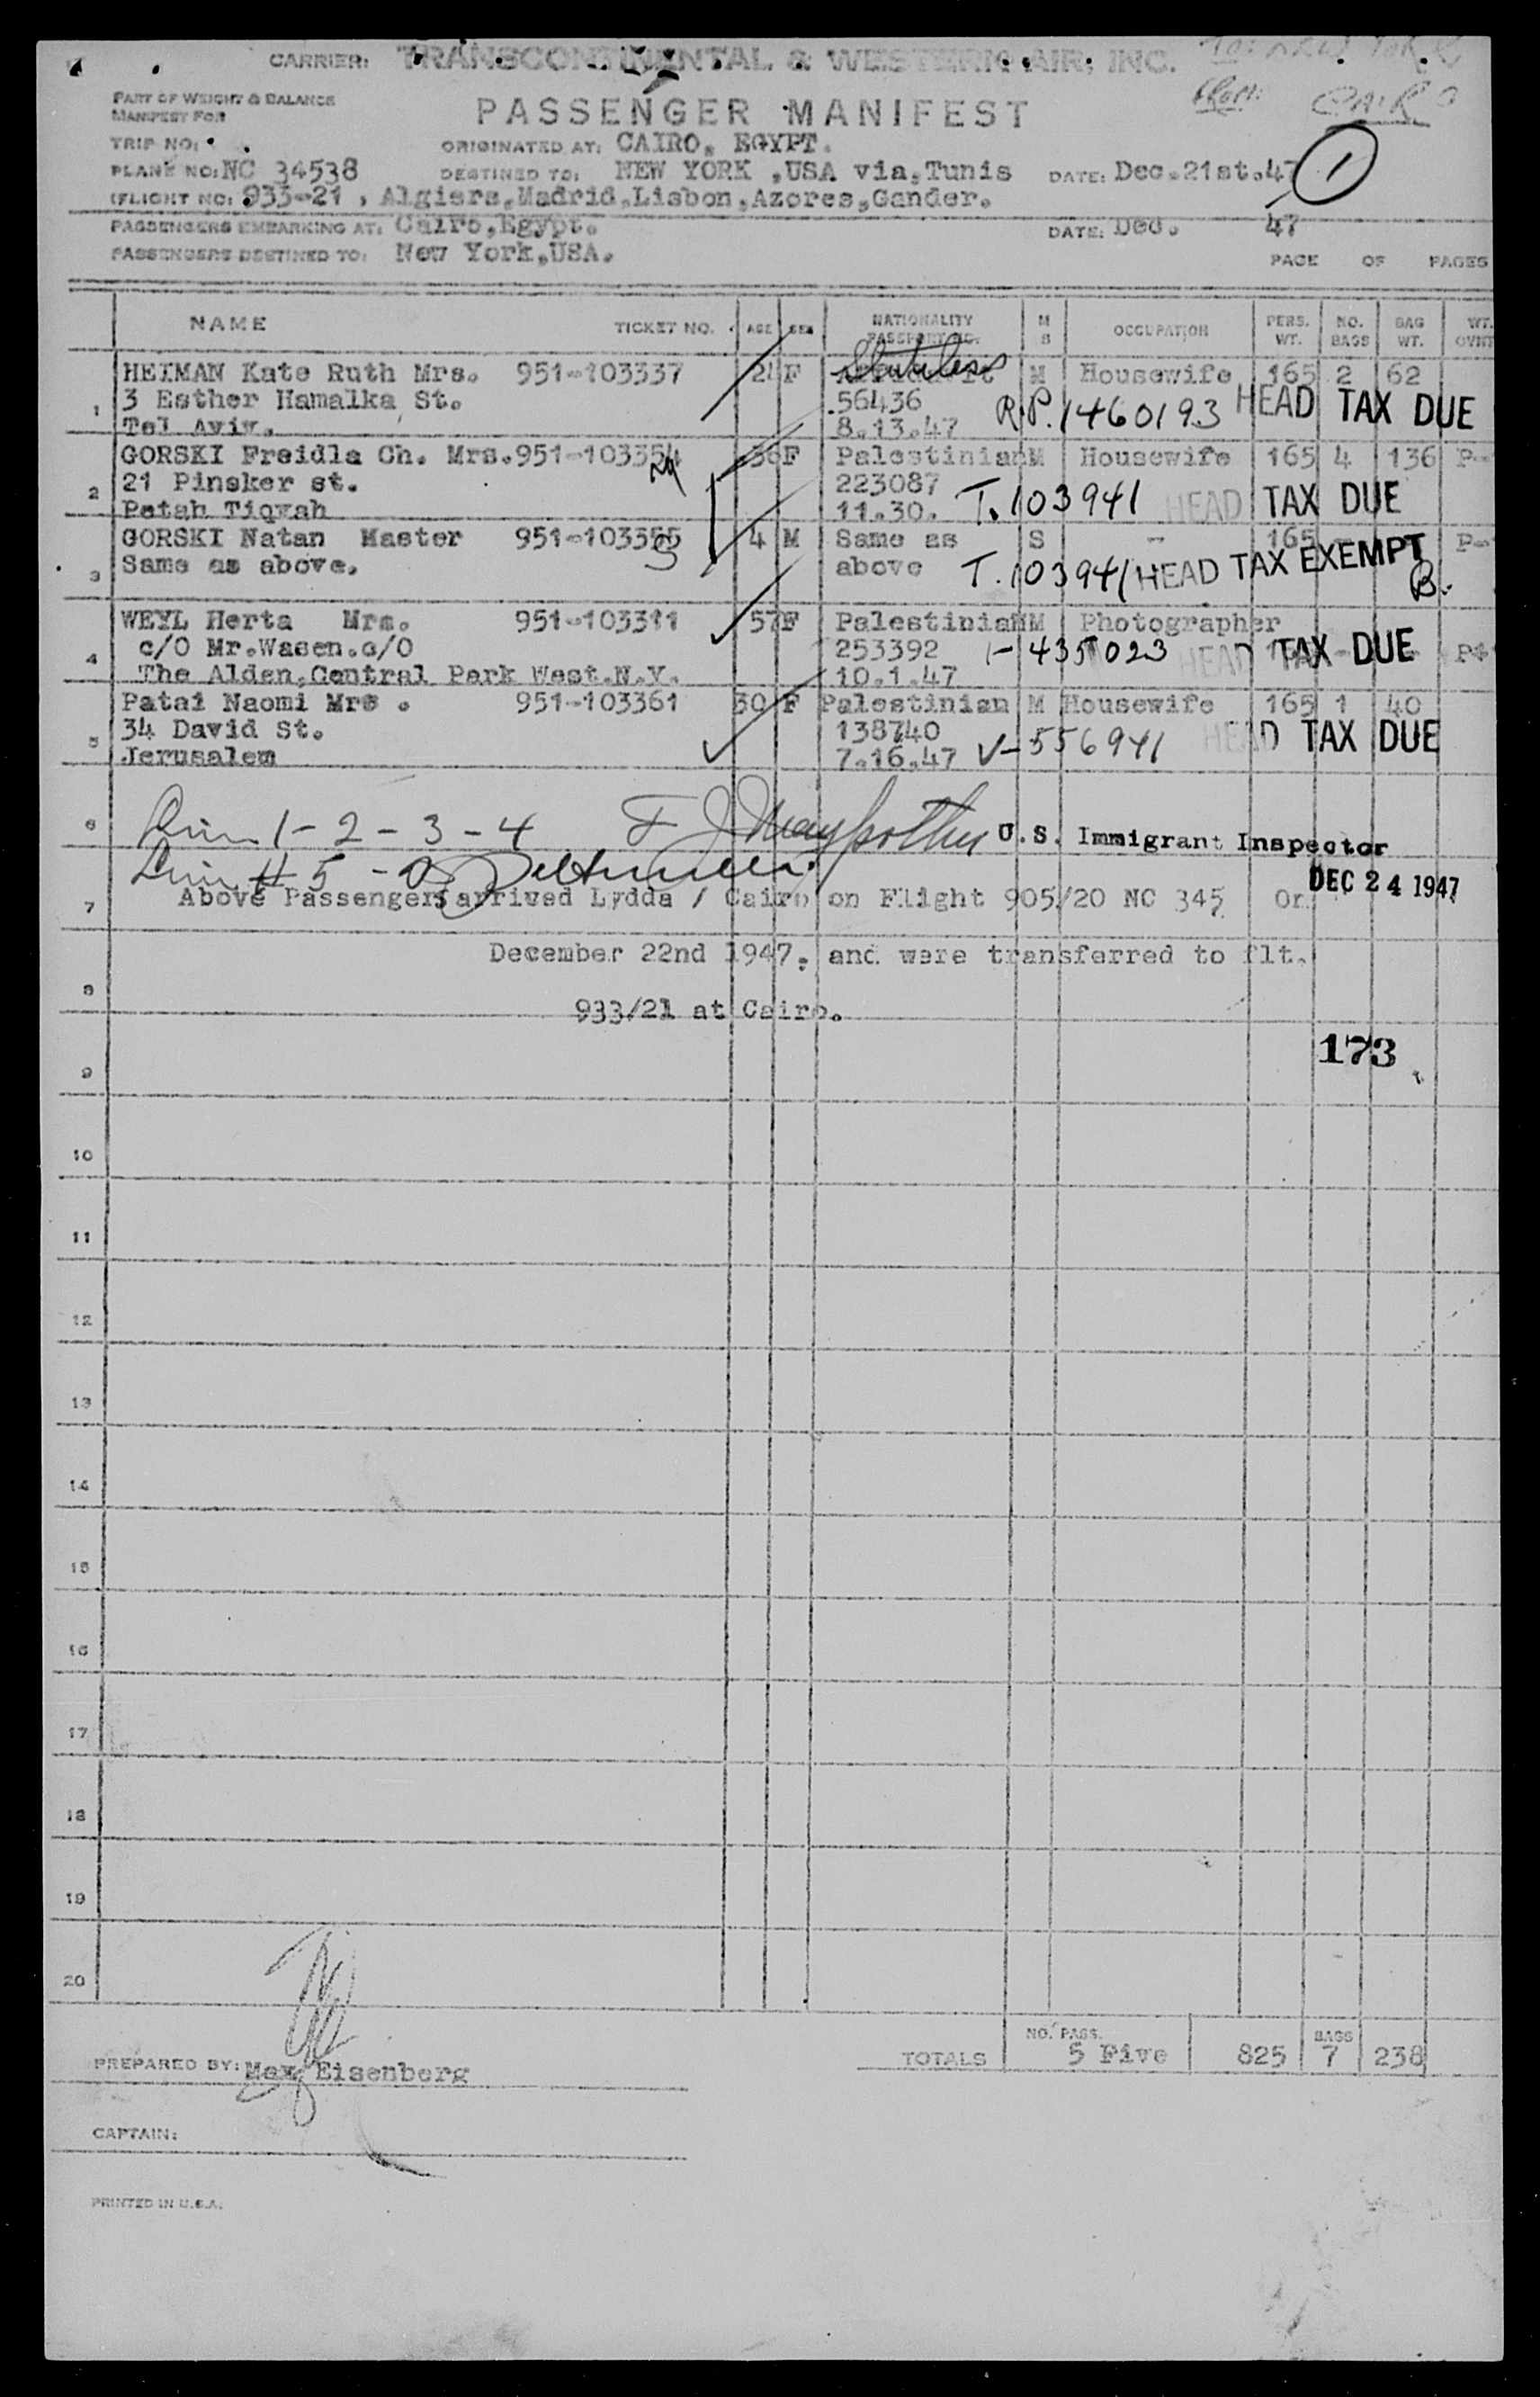 CARRIER: TRANSCONTINENTAL & WESTERN AIR, INC. To: NEW YORK
PART OF WEIGHT & BALANCE
MANIFEST FOR
PASSENGER MANIFEST From: CAIRO
TRIP NO: ORIGINATED AT: CAIRO, EGYPT.
PLANE NO: NC 34538 DESTINED TO: NEW YORK ,USA via,Tunis DATE: Dec.21st.47 1
(FLIGHT NO: 933-21 , Algiers,Madrid,Lisbon,Azores,Gander.
PASSENGERS EMBARKING AT: Cairo,Egypt. DATE: Dec. 47
PASSENGERS DESTINED TO: New York,USA. PAGE OF PAGES
NAME TICKET NO. AGE SEX NATIONALITY PASSPORT NO. M S OCCUPATION PERS. WT. NO. BAGS BAG WT. WT.
HEIMAN Kate Ruth Mrs. 951-103337 F Stateless M Housewife 165 2 62
1 3 Esther Hamalka St. 56436 R.P. 1460193 HEAD TAX DUE
Tel Aviv. 8.13.47
GORSKI Freidla Ch. Mrs. 951-103354 36 F Palestinian M Housewife 165 4 136 P-
2 21 Pinsker st. 223087 T.103941 HEAD TAX DUE
Petah Tiqvah 11.30.
GORSKI Natan Master 951-103355 4 M Same as S - 165 - P-
3 Same as above. above T.103941 HEAD TAX EXEMPT
B.
WEYL Herta Mrs. 951-103311 57 F Palestinian M Photographer
4 c/O Mr.Wasen.c/O 253392 1-435023 HEAD TAX DUE
The Alden,Central Park West.N.Y. 10.1.47
Patai Naomi Mrs . 951-103361 30 F Palestinian M Housewife 165 1 40
5 34 David St. 138740 V-556941 HEAD TAX DUE
Jerusalem 7.16.47
6 1 - 2 - 3 - 4 U.S. Immigrant Inspector
# 5 - DEC 24 1947
7 Above Passengers arrived Lydda / Cairo on Flight 905/20 NC 345 On
December 22nd 1947. and were transferred to flt.
8 933/21 at Cairo.
173
9
10
11
12
13
14
15
16
17
18
19
20
TOTALS NO. PASS. 5 Five 825 BAGS 7 238
PREPARED BY: Max Eisenberg
CAPTAIN:
PRINTED IN U.S.A.